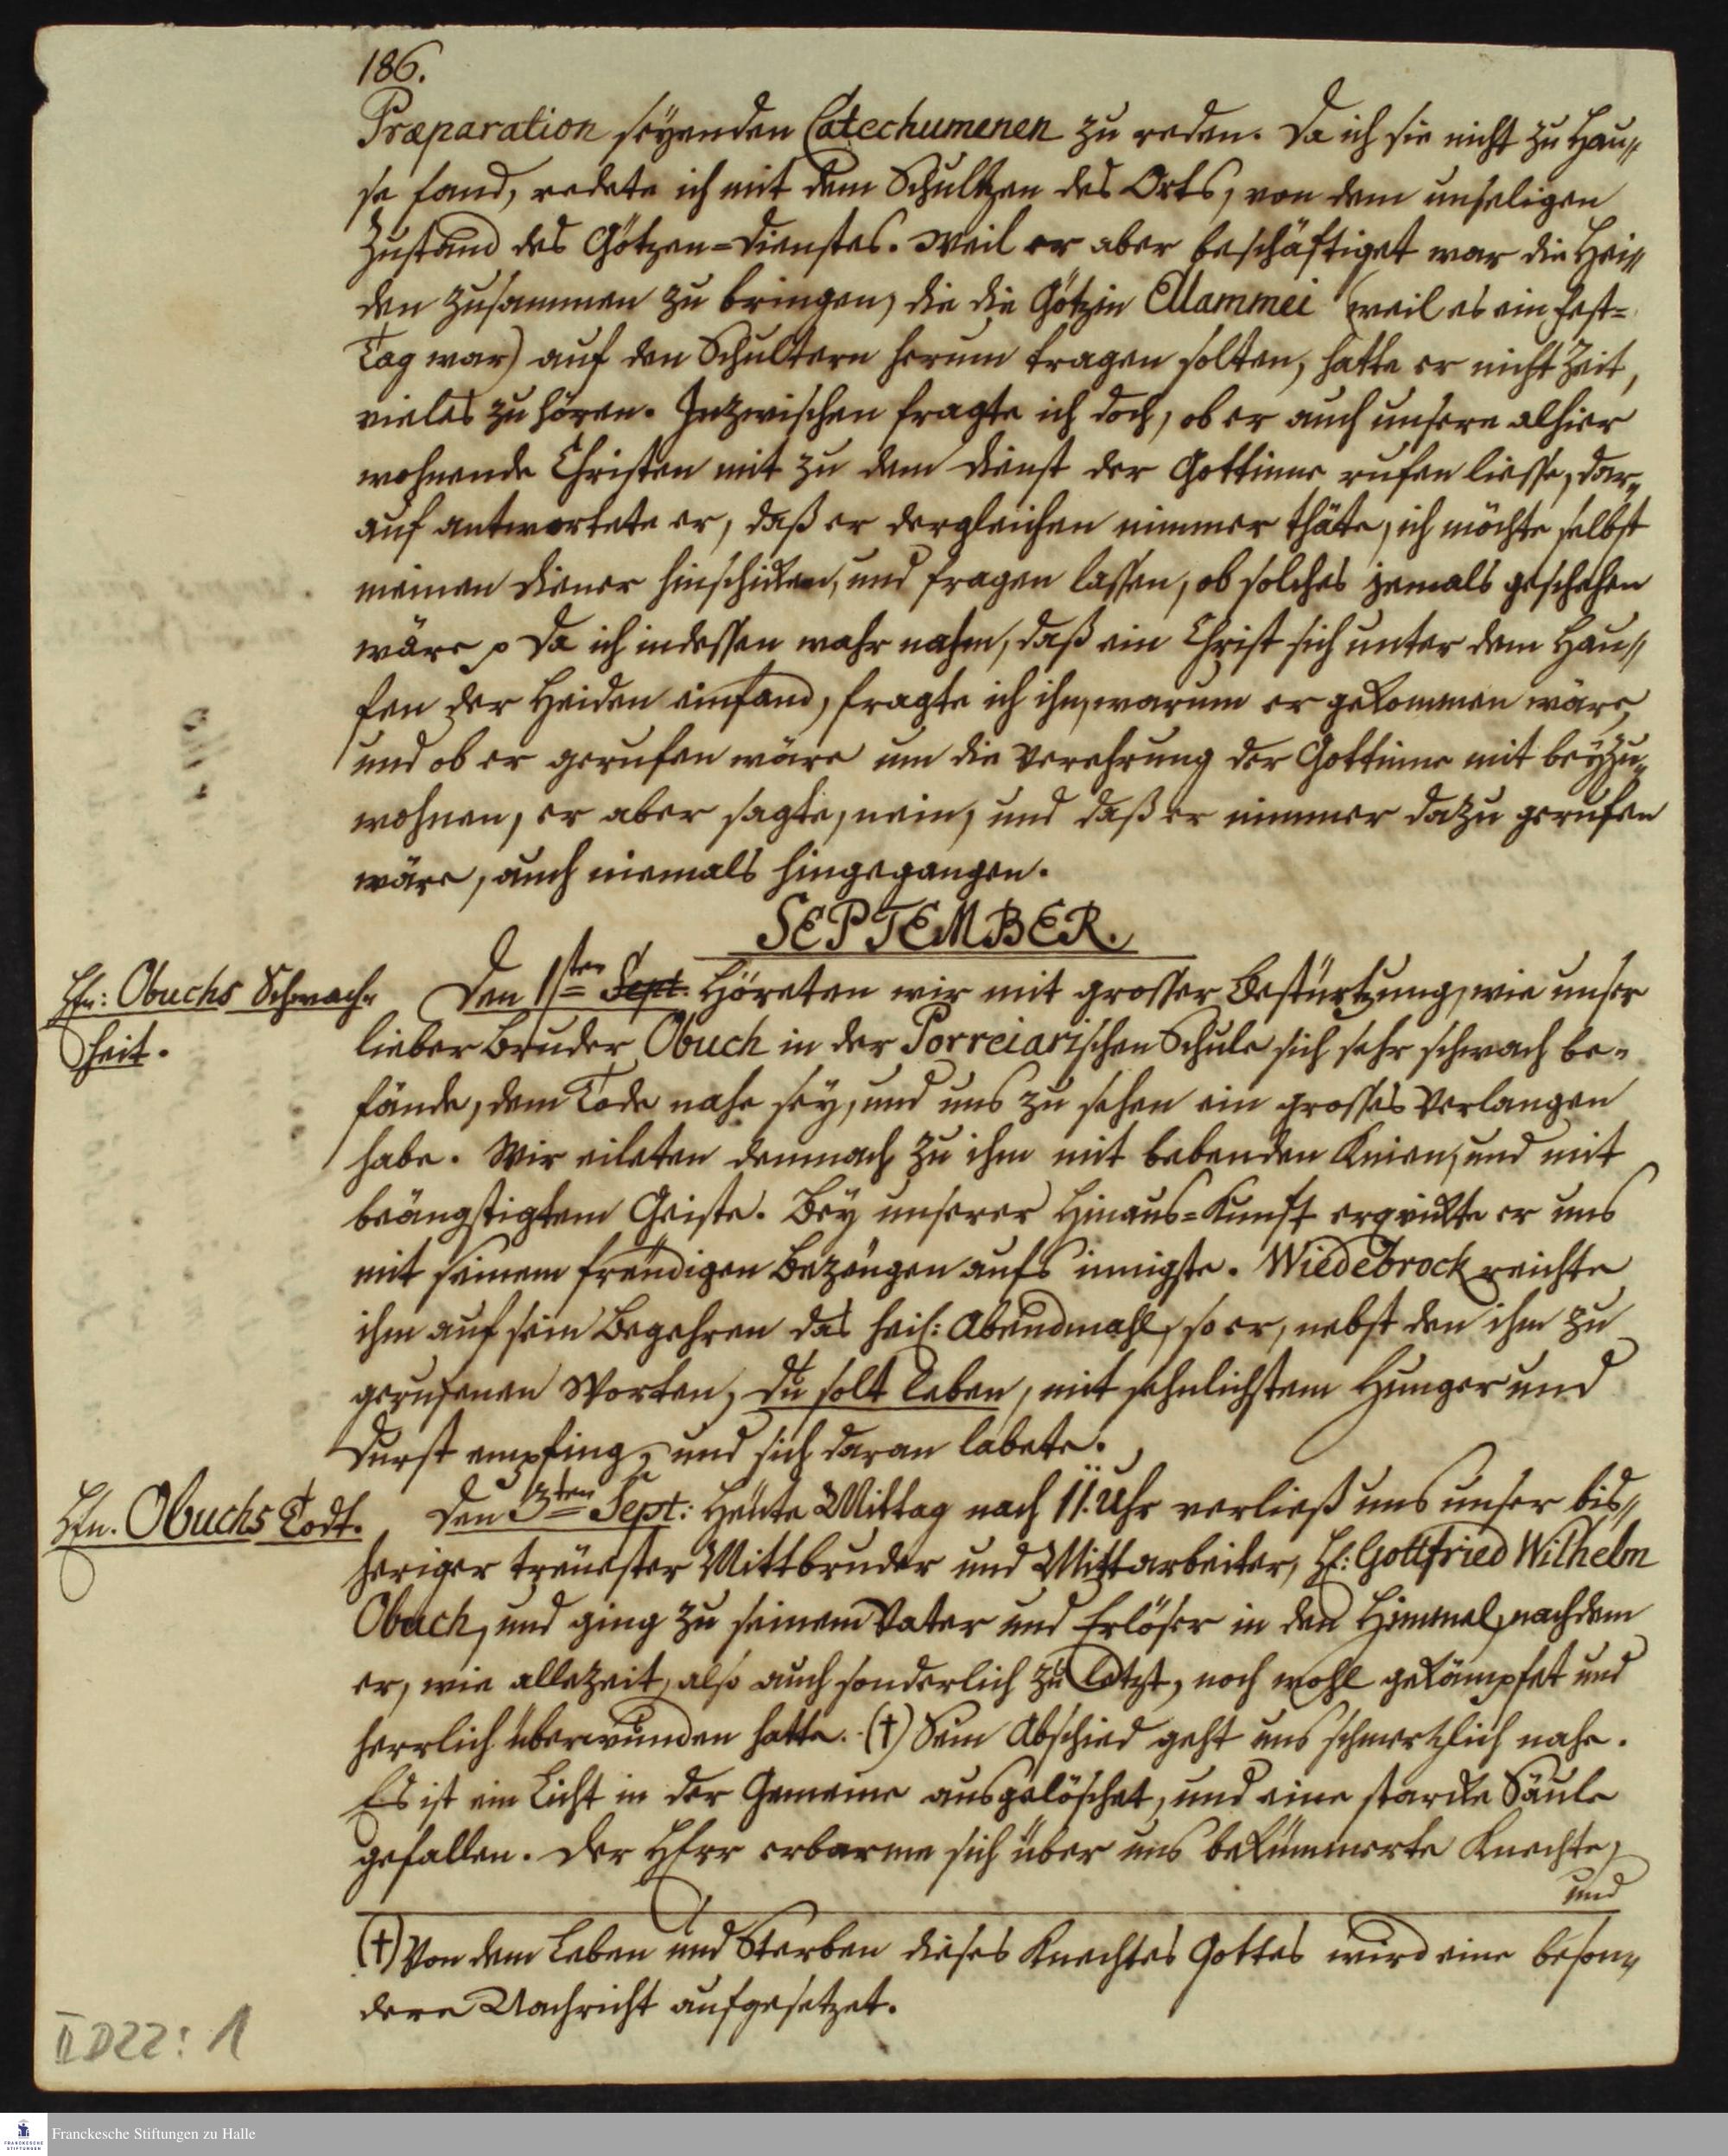 186.
Præparation seyenden Catechumenen zu reden. Da ich sie nicht zu Hau-
se fand, redete ich mit dem Schultzen des Orts, von dem unseligen
Zustand des Götzen-Dienstes. Weil er aber beschäftiget war die Hei-
den zusammen zu bringen, die die Götzin Ellammei (weil es ein Fest-
Tag war) auf den Schultern herum tragen solten, hatte er nicht Zeit,
vieles zu hören. Inzwischen fragte ich doch, ob er auch unsere alhier
wohnende Christen mit zu dem Dienst der Göttinne rufen liesse, dar-
auf antwortete er, daß er dergleichen nimmer thäte, ich möchte selbst
meinen Diener hinschicken, und fragen lassen, ob solches jemals geschehen
wäre. Da ich indessen wahr nahm, daß ein Christ sich unter dem Hau-
fen der Heiden einfand, fragte ich ihn, warum er gekommen wäre,
und ob er gerufen wäre um die Verehrung der Göttinne mit beyzu-
wohnen, er aber sagte, nein, und daß er nimmer dazu gerufen
wäre, auch niemals hingegangen.
SEPTEMBER.
Hrn: Obuchs Schwach-
heit.
Den 1sten Sept. Höreten wir mit grosser Bestürtzung, wie unser
lieber Bruder Obuch in der Porreiarischen Schule sich sehr schwach be-
fände, dem Tode nahe sey, und uns zu sehen ein grosses Verlangen
habe. Wir eileten demnach zu ihm mit bebenden Knien, und mit
beängstigtem Geiste. Bey unserer Hinaus-Kunft erqvickte er uns
mit seinem freudigen Bezeugen aufs innigste. Wiedebrock reichte
ihm auf sein Begehren das heil: Abendmahl, so er, nebst den ihm zu
gerufenen Worten, du solt leben, mit sehnlichstem Hunger und
Durst empfing, und sich daran labete.
Hrn. Obuchs Todt.
Den 3ten Sept: Heute Mittag nach 11. Uhr verließ uns unser bis-
heriger treuester Mittbruder und Mittarbeiter, H: Gottfried Wilhelm
Obuch, und ging zu seinem Vater und Erlöser in den Himmel, nachdem
er, wie allezeit, also auch sonderlich zu letzt, noch wohl gekämpfet und
herrlich überwunden hatte. (†) Sein Abschied geht uns schmertzlich nahe.
Es ist ein Licht in der Gemeine ausgelöschet, und eine starcke Säule
gefallen. Der HErr erbarme sich über uns bekümmerte Knechte,
und
(†) Von dem Leben und Sterben dieses Knechtes Gottes wird eine beson-
dere Nachricht aufgesetzet.
II D22: 1
FRANCKESCHE STIFTUNGEN
Franckesche Stiftungen zu Halle